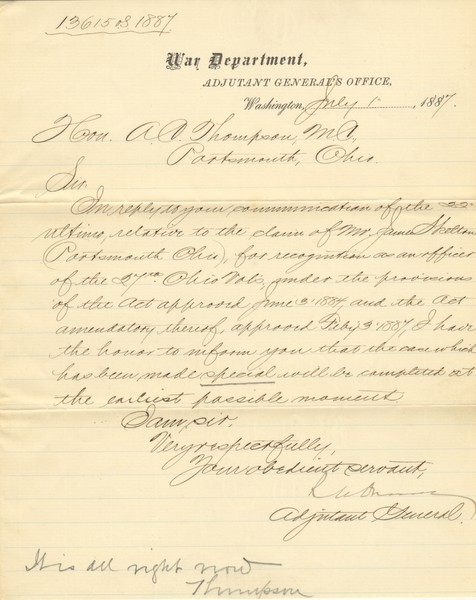 13615 B 1887
War Department,
ADJUTANT GENERAL'S OFFICE,
Washington, July 1, 1887.
Hon. A. C. Thompson, M.C,
Portsmouth, Ohio.
Sir:
In reply to your communication of the 22
ultimo, relative to the claim of Mr. James Skelton
(Portsmouth Ohio), for recognition as an officer
of the 27th Ohio Vols, under the provisions
of the Act approved June 3 1884 and the Act
amendatory thereof, approved Feby 3 1887, I have
the honor to inform you that the case which
has been made special will be completed at
the earliest possible moment
I am, sir,
Very respectfully,
Your obedient servant,
Adjutant General.
It is all right now
Thompson